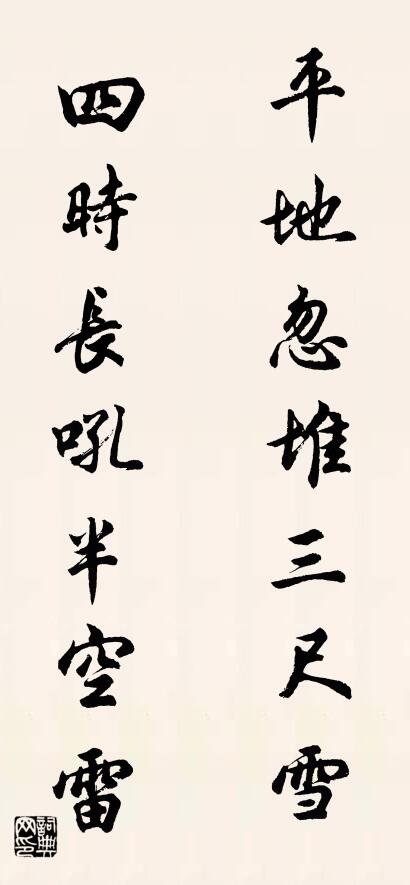 平地忽堆三尺雪
四時長吼半空雷
詞典网印